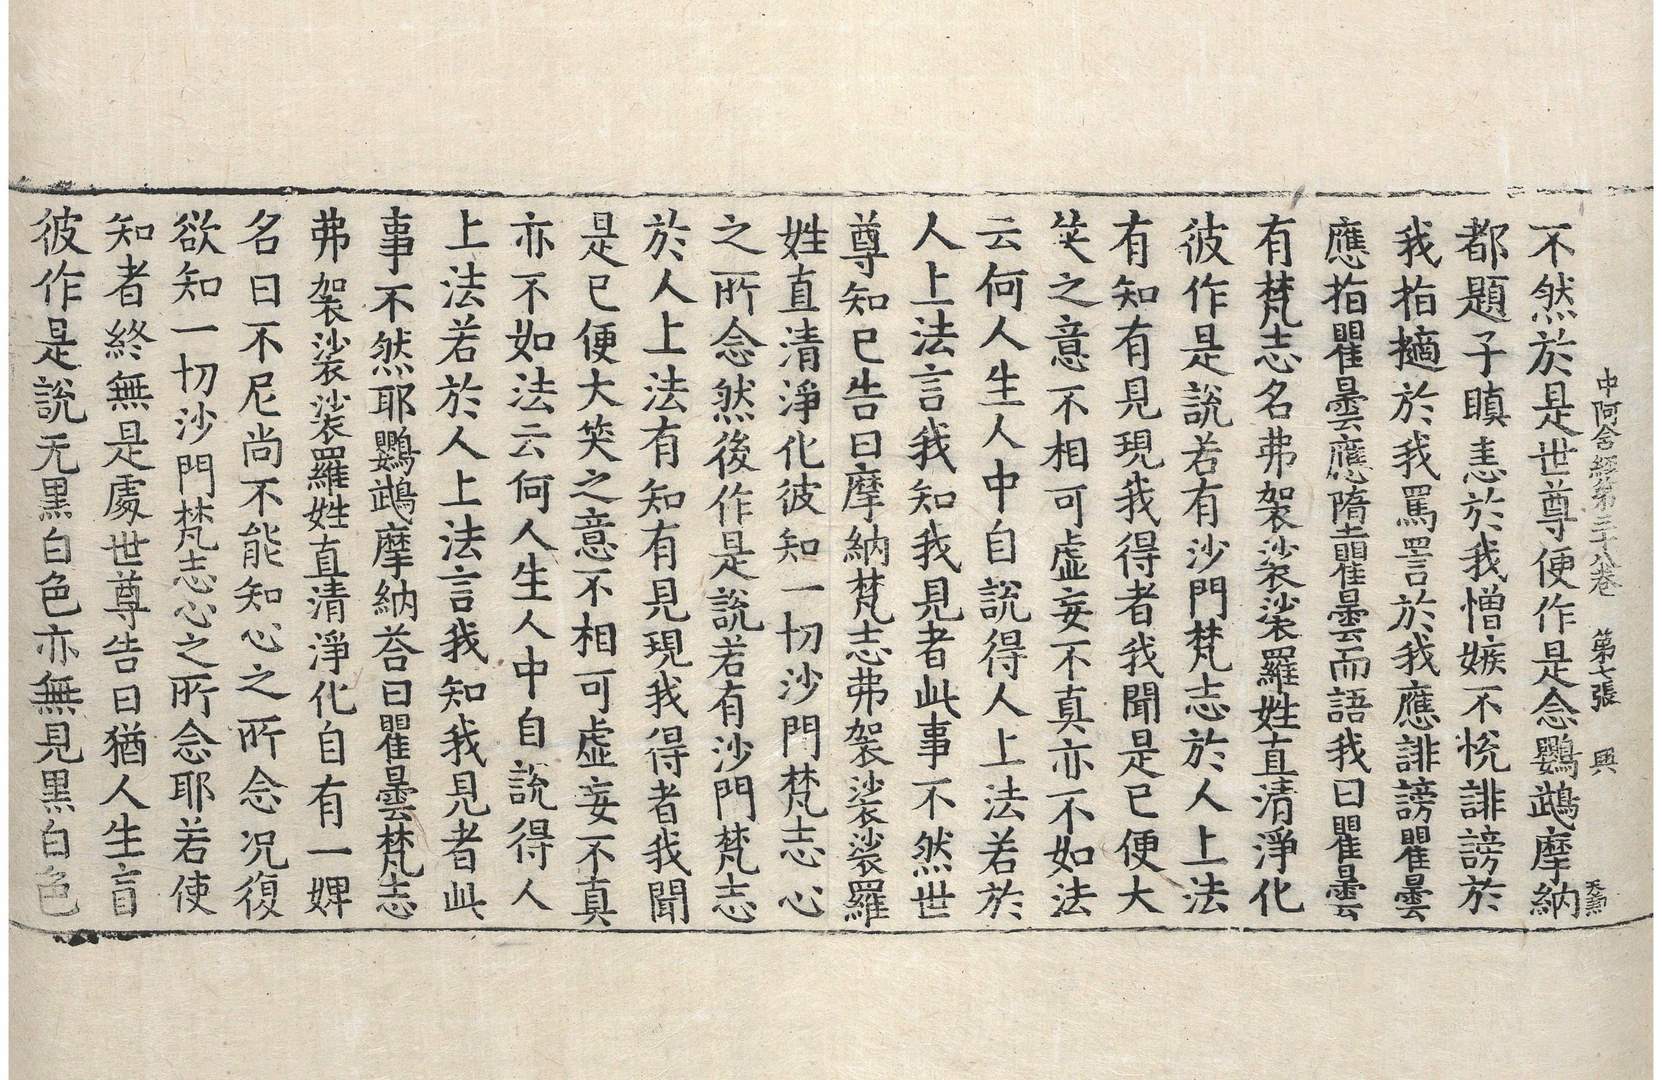 中阿含經第三十八卷 第七張 興
不然於是世尊便作是念鸚鵡摩納
都題子瞋恚於我憎嫉不悅誹謗於
我指擿於我罵詈於我應誹謗瞿曇
應指瞿曇應墮瞿曇而語我曰瞿曇
有梵志名弗袈裟裟羅姓直清淨化
彼作是說若有沙門梵志於人上法
有知有見現我得者我聞是已便大
笑之意不相可虛妄不真亦不如法
云何人生人中自說得人上法若於
人上法言我知我見者此事不然世
尊知已告曰摩納梵志弗袈裟裟羅
姓直清淨化彼知一切沙門梵志心
之所念然後作是說若有沙門梵志
於人上法有知有見現我得者我聞
是已便大笑之意不相可虛妄不真
亦不如法云何人生人中自說得人
上法若於人上法言我知我見者此
事不然耶鸚鵡摩納荅曰瞿曇梵志
弗袈裟裟羅姓直清淨化自有一婢
名曰不尼尚不能知心之所念況復
欲知一切沙門梵志心之所念耶若使
知者終無是處世尊告曰猶人生盲
彼作是說无黑白色亦無見黑白色